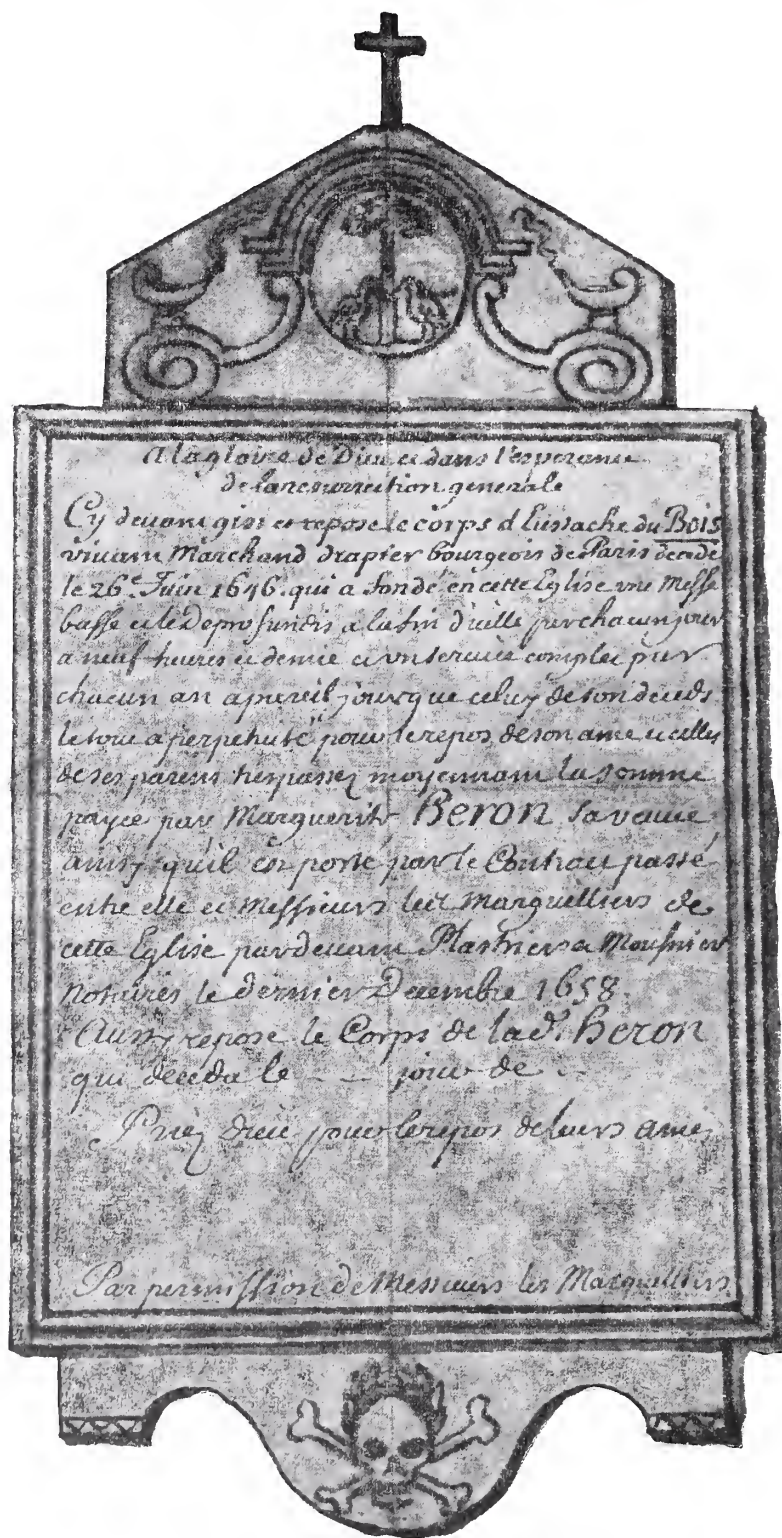 A la gloire de Dieu et dans l'esperance
de la resurrection generale
Cy devant gist et repose le corps d Eustache du Bois
vivant Marchand drapier bourgeois de Paris decede
le 26e Juin 1646. qui a fondé en cette Eglise une Messe
basse et le De profundis a la fin d'icelle pur chacun jour
a neuf heures et demie et un service complet pur
chacun an a pareil jour que celuy de son deceds
le tout a perpetuité pour le repos de son ame et celles
de ses parens trespassez moyennant la somme
payée par Marguerite Beron sa veuve
ainsy qu'il est porté par le Contract passé
entre elle et Messieurs les marguilliers de
cette Eglise pardevant Plastrier et Mousnier
notaires le dernier Decembre 1658.
Aussy repose le Corps de lad. heron
qui deceda le jour de
Priez dieu pour le repos de leurs ames
Par permission de Messieurs les Marguilliers